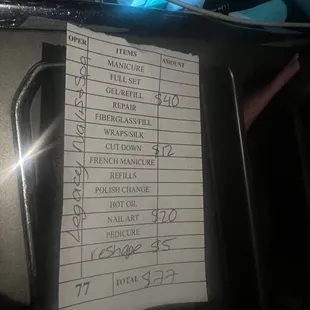 OPER ITEMS AMOUNT
MANICURE
FULL SET
GEL/REFILL $40
REPAIR
FIBERGLASS/FILL
WRAPS/SILK
CUT DOWN $12
FRENCH MANICURE
REFILLS
POLISH CHANGE
HOT OIL
NAIL ART $20
PEDICURE
reshape $5
77 TOTAL $77
Legacy Nails & Spa